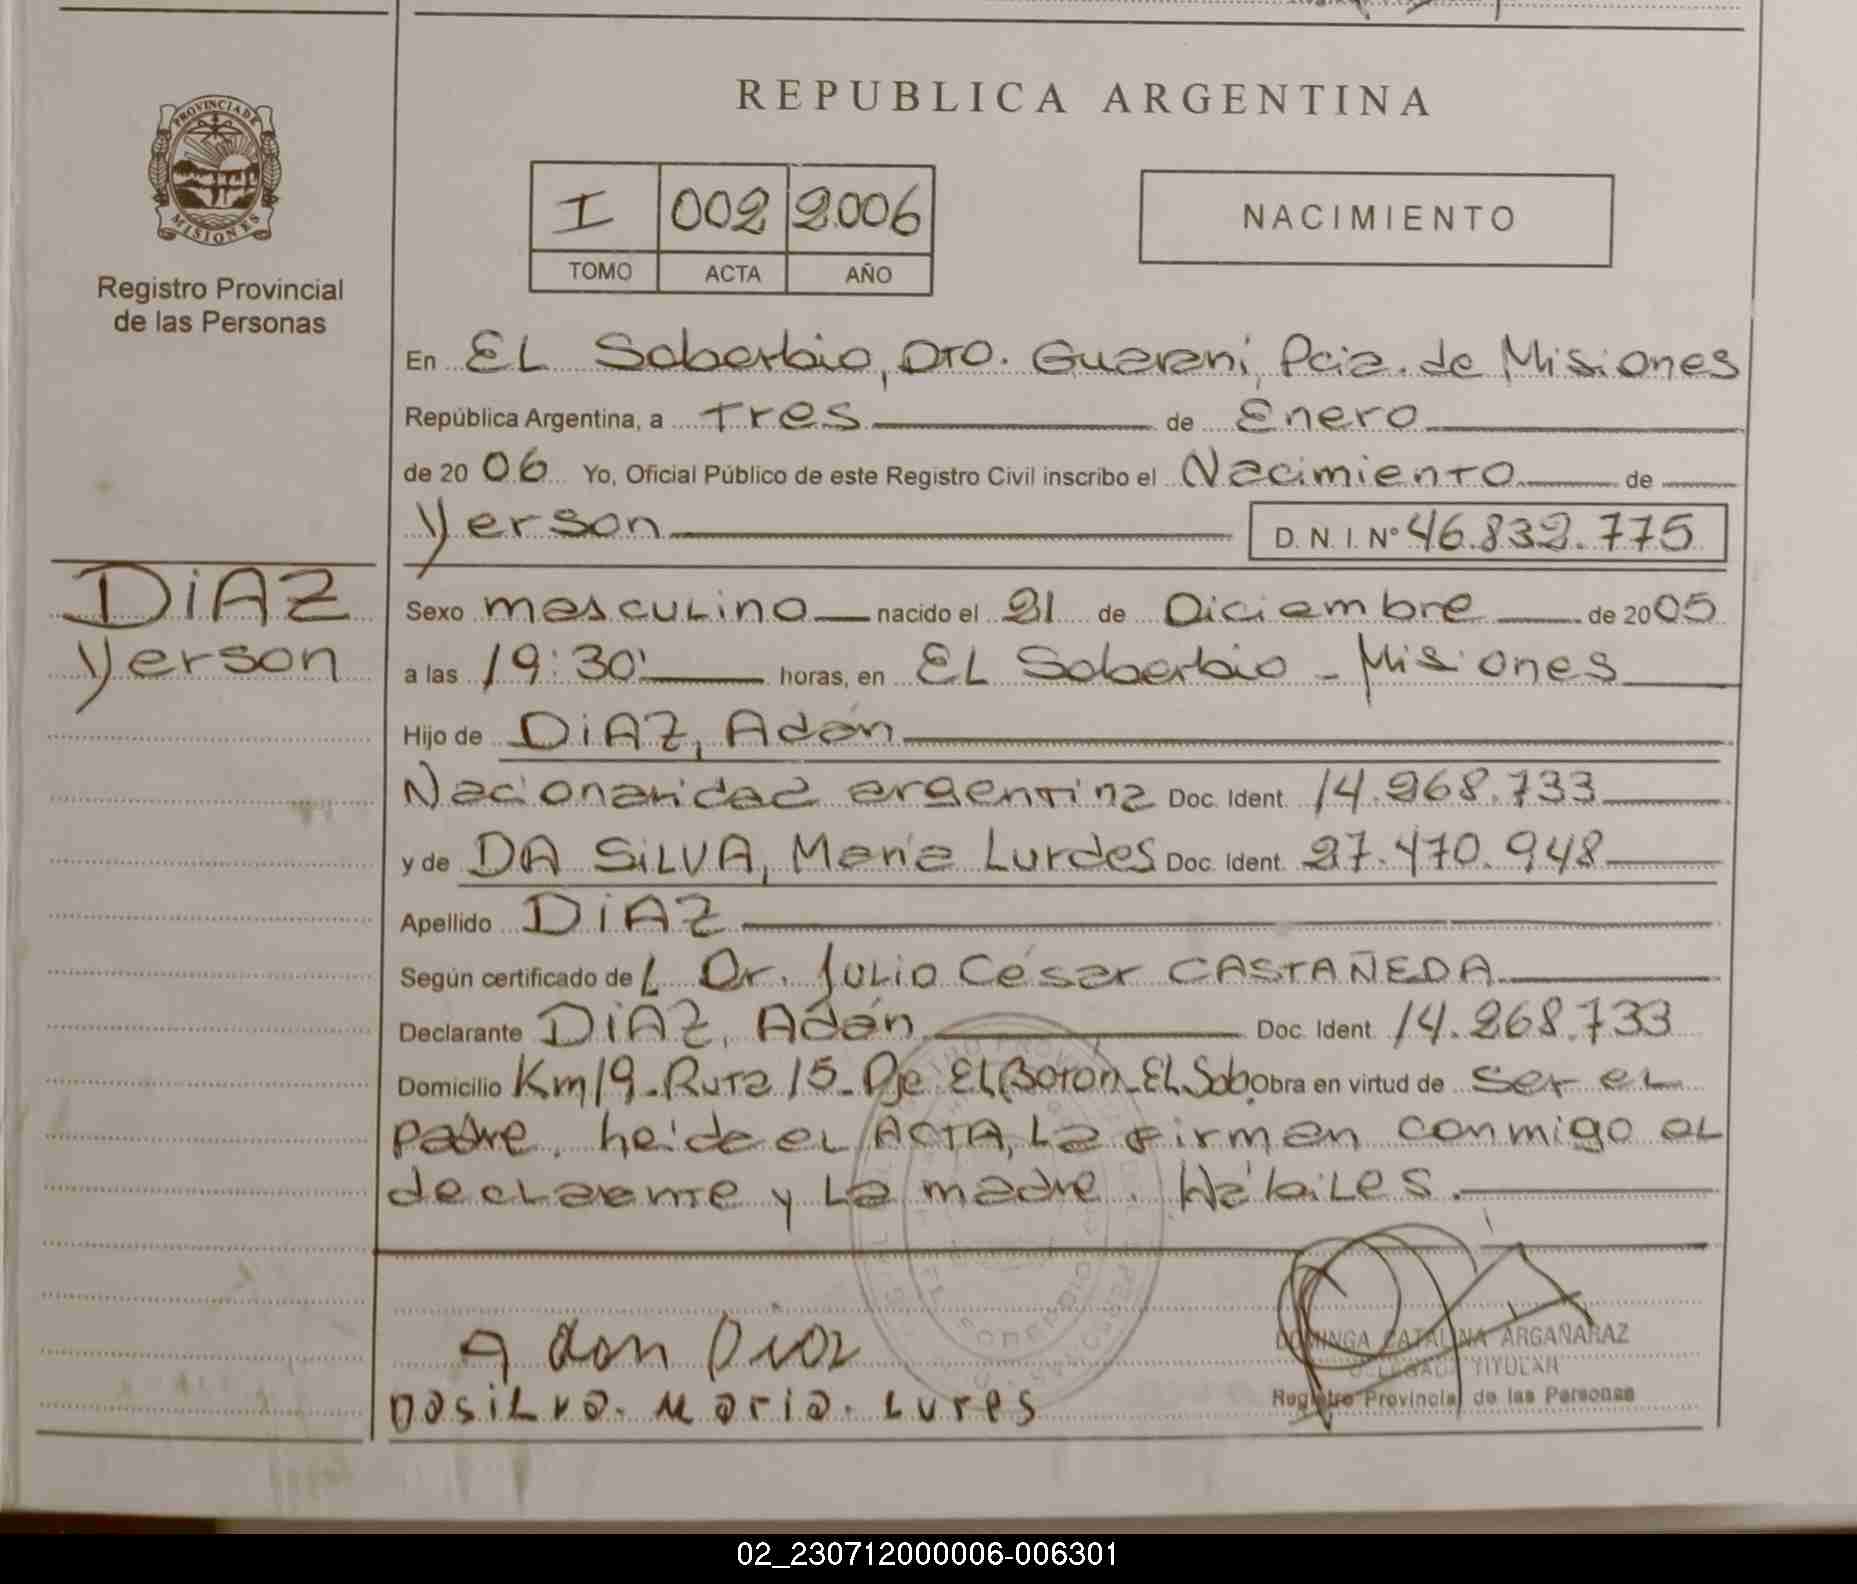 REPUBLICA ARGENTINA
PROVINCIA DE MISIONES
Registro Provincial
de las Personas
I 002 2006
TOMO ACTA AÑO
NACIMIENTO
En EL Soberbio, Dto. Guaraní, Pcia. de Misiones
República Argentina, a Tres de Enero
de 20 06 Yo, Oficial Público de este Registro Civil inscribo el Nacimiento de
Yerson D. N. I. Nº 46.832.775
DiAZ
Yerson
Sexo masculino nacido el 21 de Diciembre de 20 05
a las 19:30' horas, en EL Soberbio - Misiones
Hijo de DiAZ, Adán
Nacionalidad argentina Doc. Ident. 14.268.733
y de DA SiLVA, María Lurdes Doc. Ident. 27.470.948
Apellido DiAZ
Según certificado de L Dr. Julio César CASTAÑEDA
Declarante DiAZ, Adán Doc. Ident. 14.268.733
Domicilio Km 19 - Ruta 15 - Pje EL Boton - EL Sob. Obra en virtud de ser el
padre, heide el ACTA, La firman conmigo el
declarante y La madre. Hábiles.
Adan Diaz
DasiLva. Maria. Lures
DOMINGA CATALINA ARGAÑARAZ
DELEGADA TITULAR
Registro Provincial de las Personas
EL SOBERBIO
02_230712000006-006301